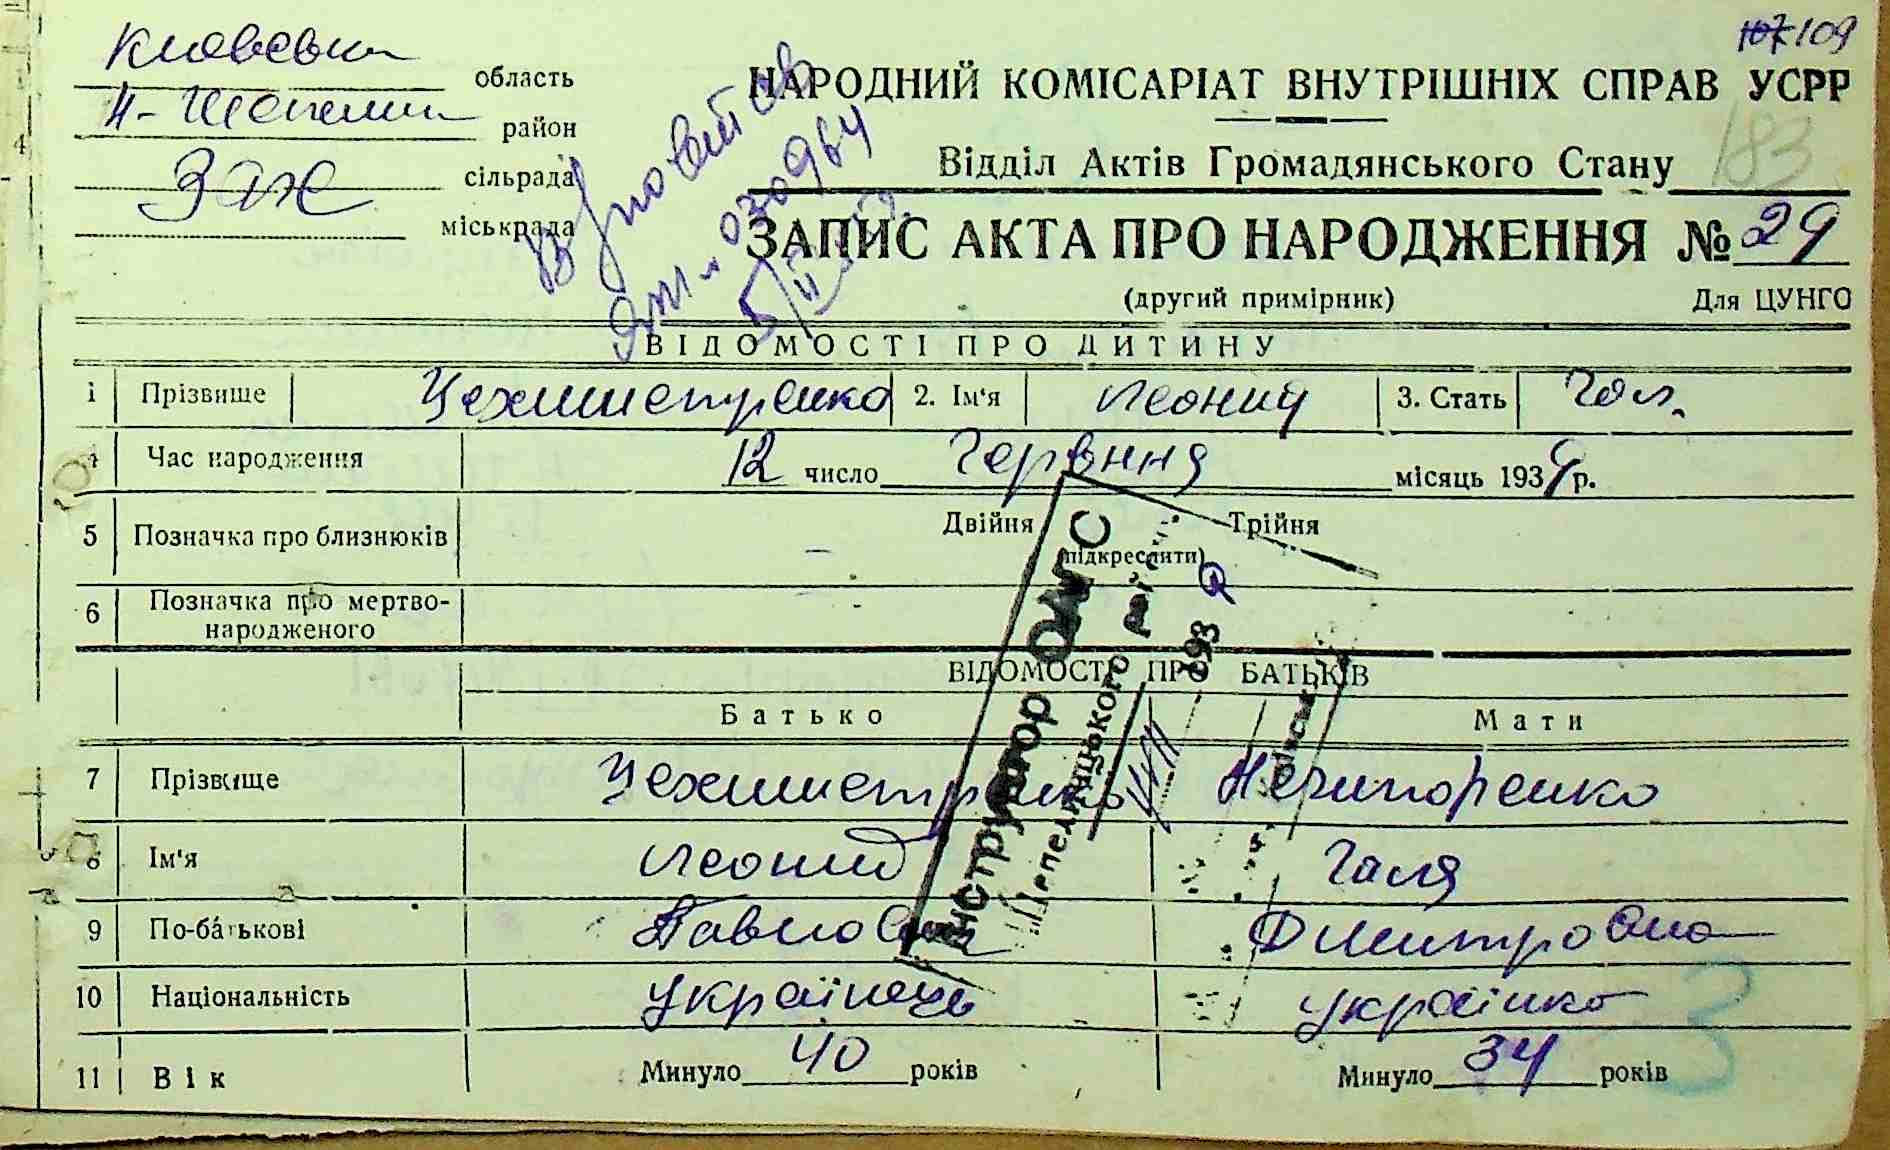 107 109
Київська область
Н-Шепелич район
ЗАЖ сільрада
міськрада
НАРОДНИЙ КОМІСАРІАТ ВНУТРІШНІХ СПРАВ УСРР
183
Відділ Актів Громадянського Стану
ЗАПИС АКТА ПРО НАРОДЖЕННЯ № 29
(другий примірник) Для ЦУНГО
030964
ВІДОМОСТІ ПРО ДИТИНУ
1 Прізвише Цехмистренко 2. Ім'я Леонид 3. Стать Чол.
4 Час народження 12 число Червння місяць 1939 р.
5 Позначка про близнюків Двійня Трійня
(підкреслити)
6 Позначка про мертво-
народженого
ВІДОМОСТІ ПРО БАТЬКІВ
Батько Мати
7 Прізвище Цехмистренко Нечипоренко
8 Ім'я Леонид Галя
9 По-батькові Павлович Дмитровна
10 Національність Українець українка
11 Вік Минуло 40 років Минуло 34 років
3
Інструктор ОАГС
Шепелицького
193 9